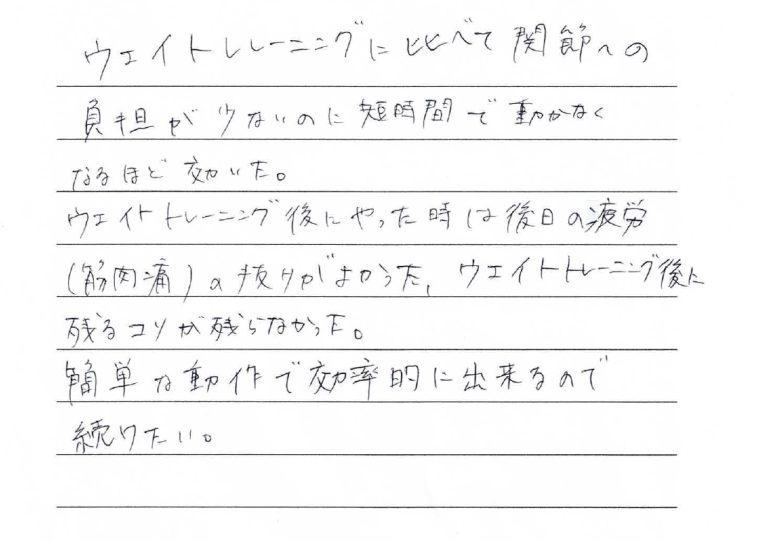 ウェイトトレーニングに比べて関節への
負担が少ないのに短時間で動かなく
なるほど効いた。
ウェイトトレーニング後にやった時は後日の疲労
(筋肉痛)の抜けがよかった、ウェイトトレーニング後に
残るコリが残らなかった。
簡単な動作で効率的に出来るので
続けたい。